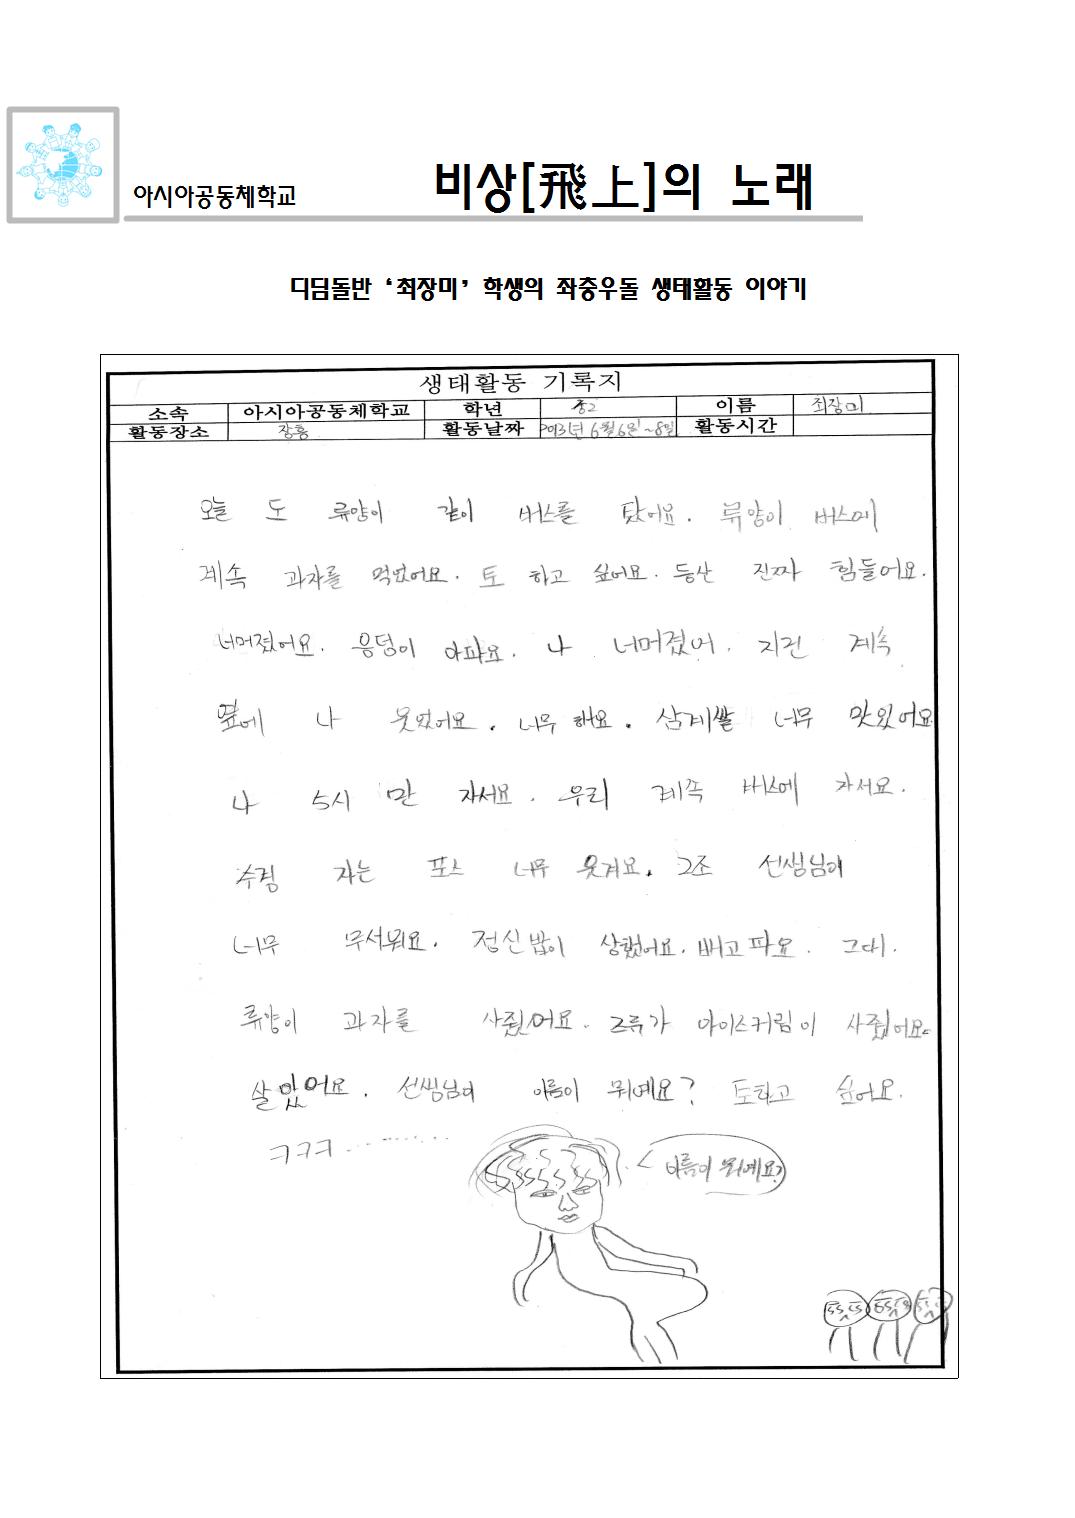 아시아공동체학교
비상[飛上]의 노래
디딤돌반 ‘최장미’ 학생의 좌충우돌 생태활동 이야기
생태활동 기록지
소속 아시아공동체학교 학년 중2 이름 최장미
활동장소 장흥 활동날짜 2013년 6월6일~8일 활동시간
오늘 도 류양이 같이 버스를 탔어요. 류양이 버스에
계속 과자를 먹었어요. 토 하고 싶어요. 등산 진짜 힘들어요.
너머졌어요. 응덩이 아파요. 나 너머졌어. 지건 계속
옆에 나 웃었어요. 너무 해요. 삼계쌀 너무 맛있어요
나 5시 만 자세요. 우리 계족 버스에 자서요.
수정 자는 포스 너무 웃겨요. 2조 선생님이
너무 무서워요. 정신밥이 상했어요. 배고파요. 그대.
류양이 과자를 사줬어요. 2류가 아이스커림이 사줬어요
살았어요. 선생님이 이름이 뭐예요? 토하고 싶어요.
ㅋㅋㅋ..........
이름이 뭐예요?